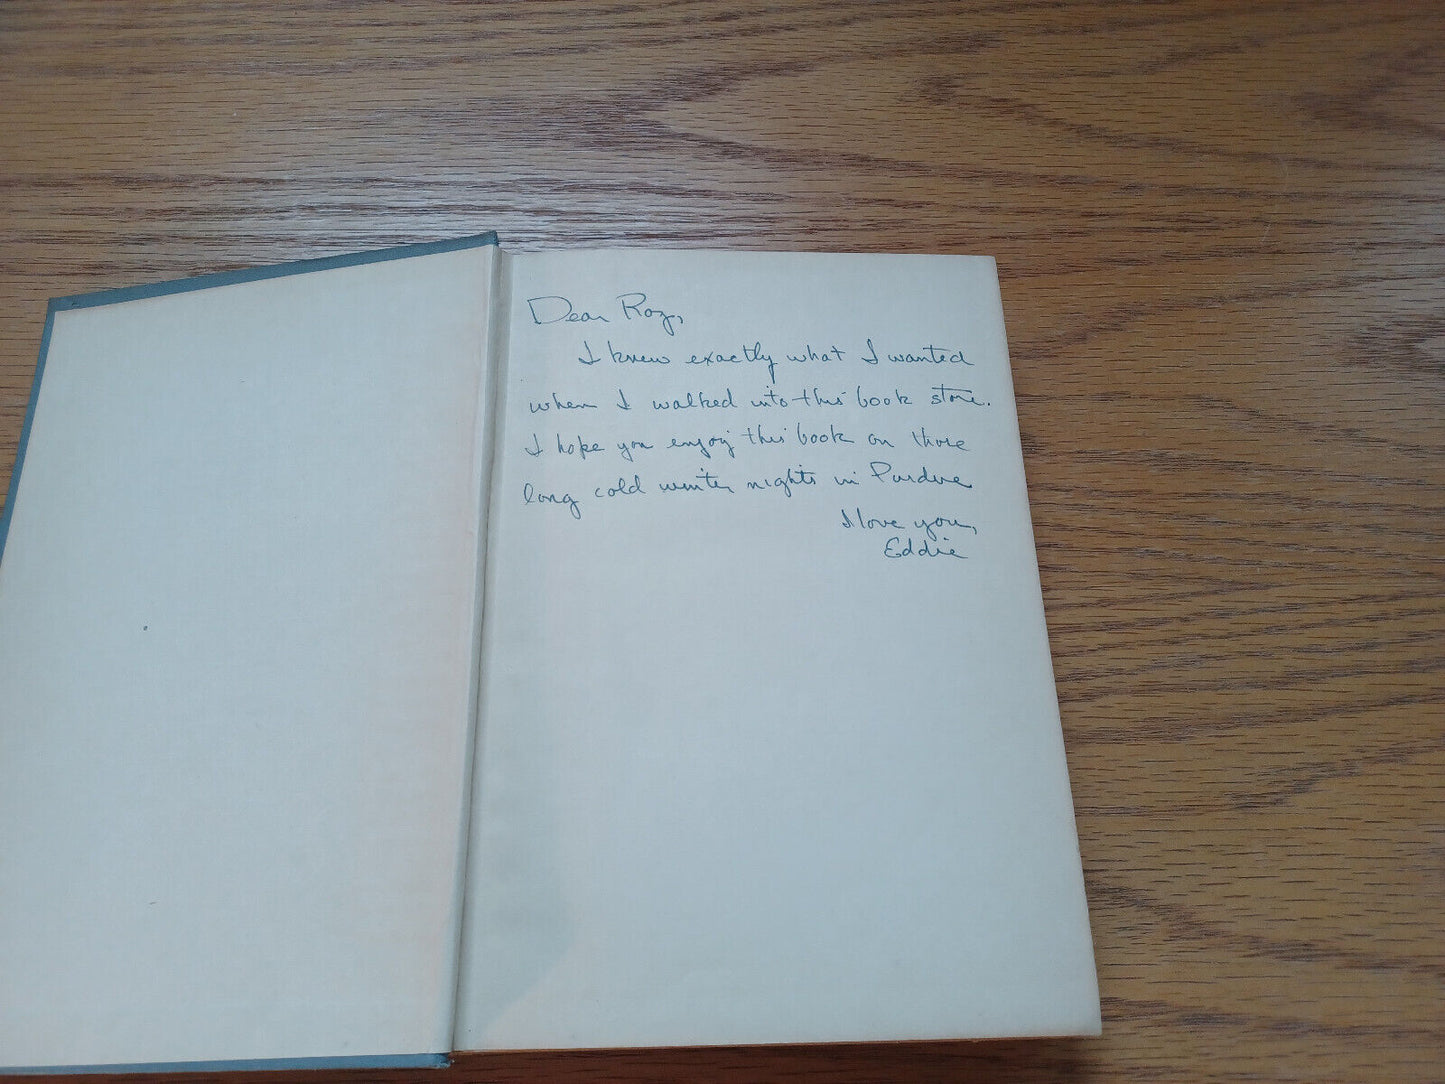 Dear Roz,
I knew exactly what I wanted
when I walked into this book store.
I hope you enjoy this book on those
long cold winter nights in Purdue
I love you,
Eddie